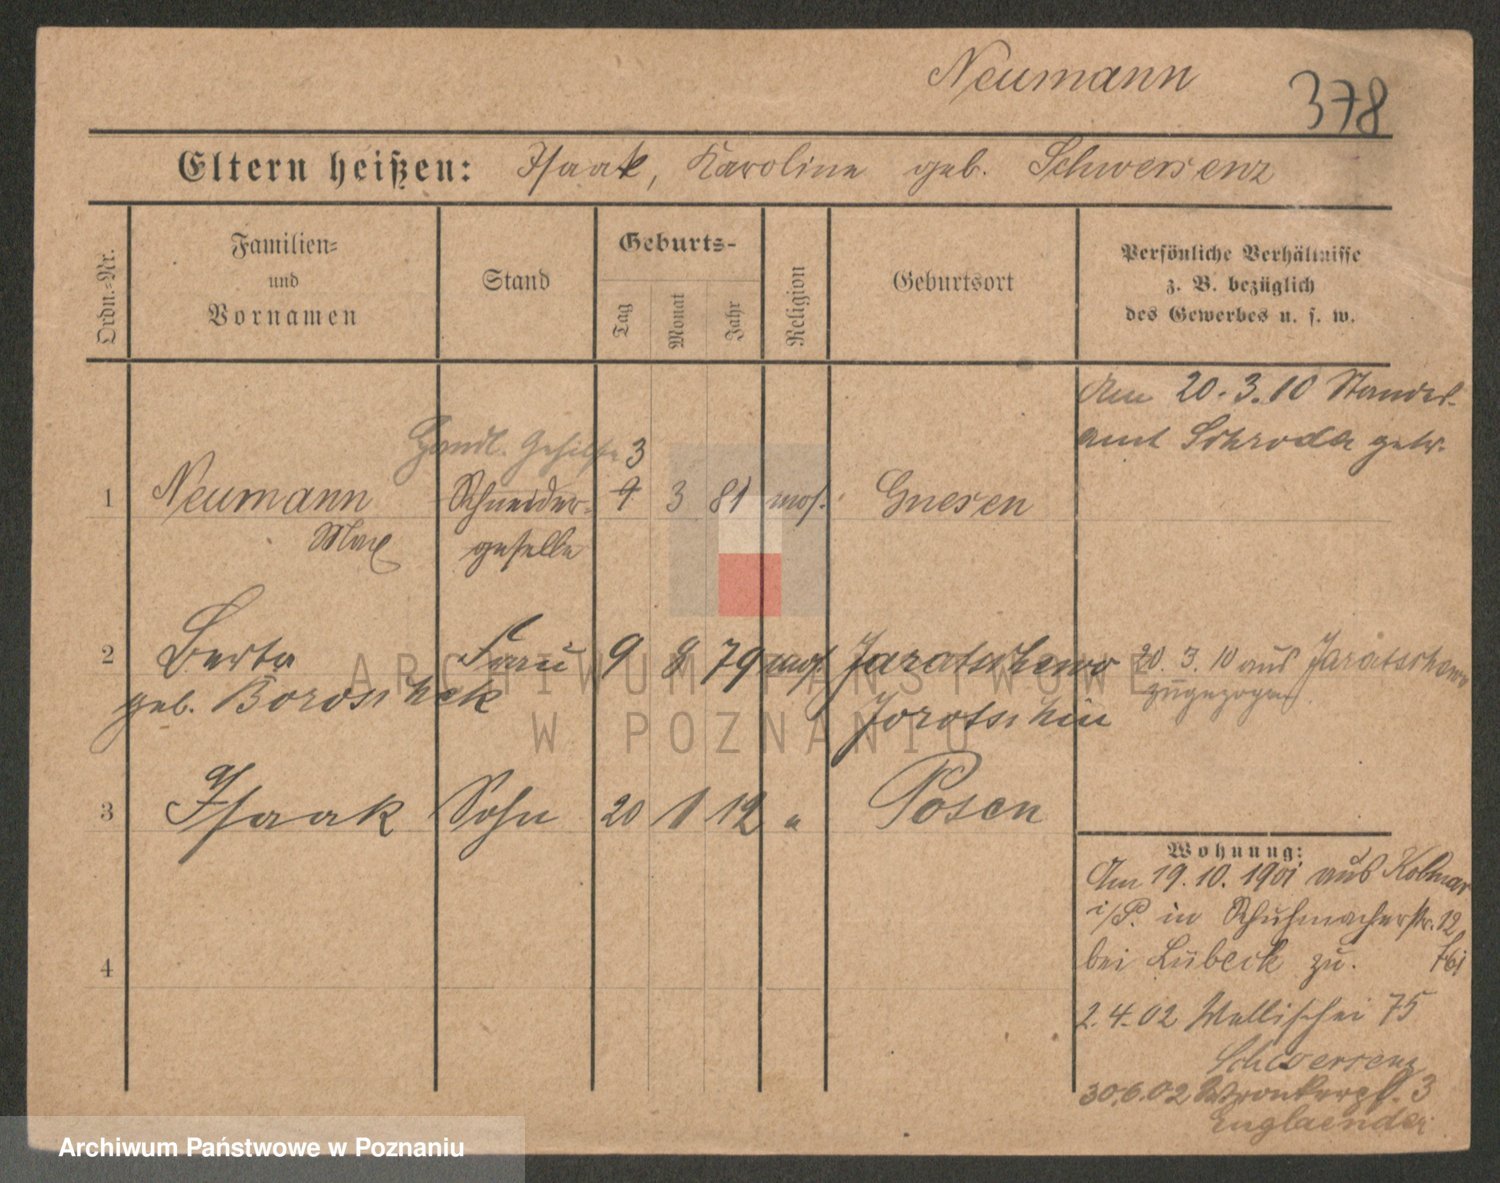 Neumann
378
Eltern heißen: Isaak, Karoline geb. Schwersenz
Ordn.-Nr.
Familien-
und
Vornamen
Stand
Geburts-
Tag
Monat
Jahr
Religion
Geburtsort
Persönliche Verhältnisse
z. B. bezüglich
des Gewerbes u. s. w.
Am 20.3.10 Standes-
amt Schroda getr.
Handl. Gehilfe 3
1 Neumann Schneider- 9 3 81 mos. Gnesen
Max geselle
2 Berta Frau 9 8 79 mos. Jaratschewo 20.3.10 aus Jaratschewo
geb. Boroschek Jarotschin zugezogen
3 Isaak Sohn 20 1 12 " Posen
4
Wohnung:
Am 19.10.1901 aus Kolmar
i/P. in Schuhmacherstr. 12
bei Lübeck zu.
2.4.02 Wallischei 75
Schwersenz
30.6.02 Wronkerpl. 3
Englaender
ARCHIWUM PAŃSTWOWE
W POZNANIU
Archiwum Państwowe w Poznaniu